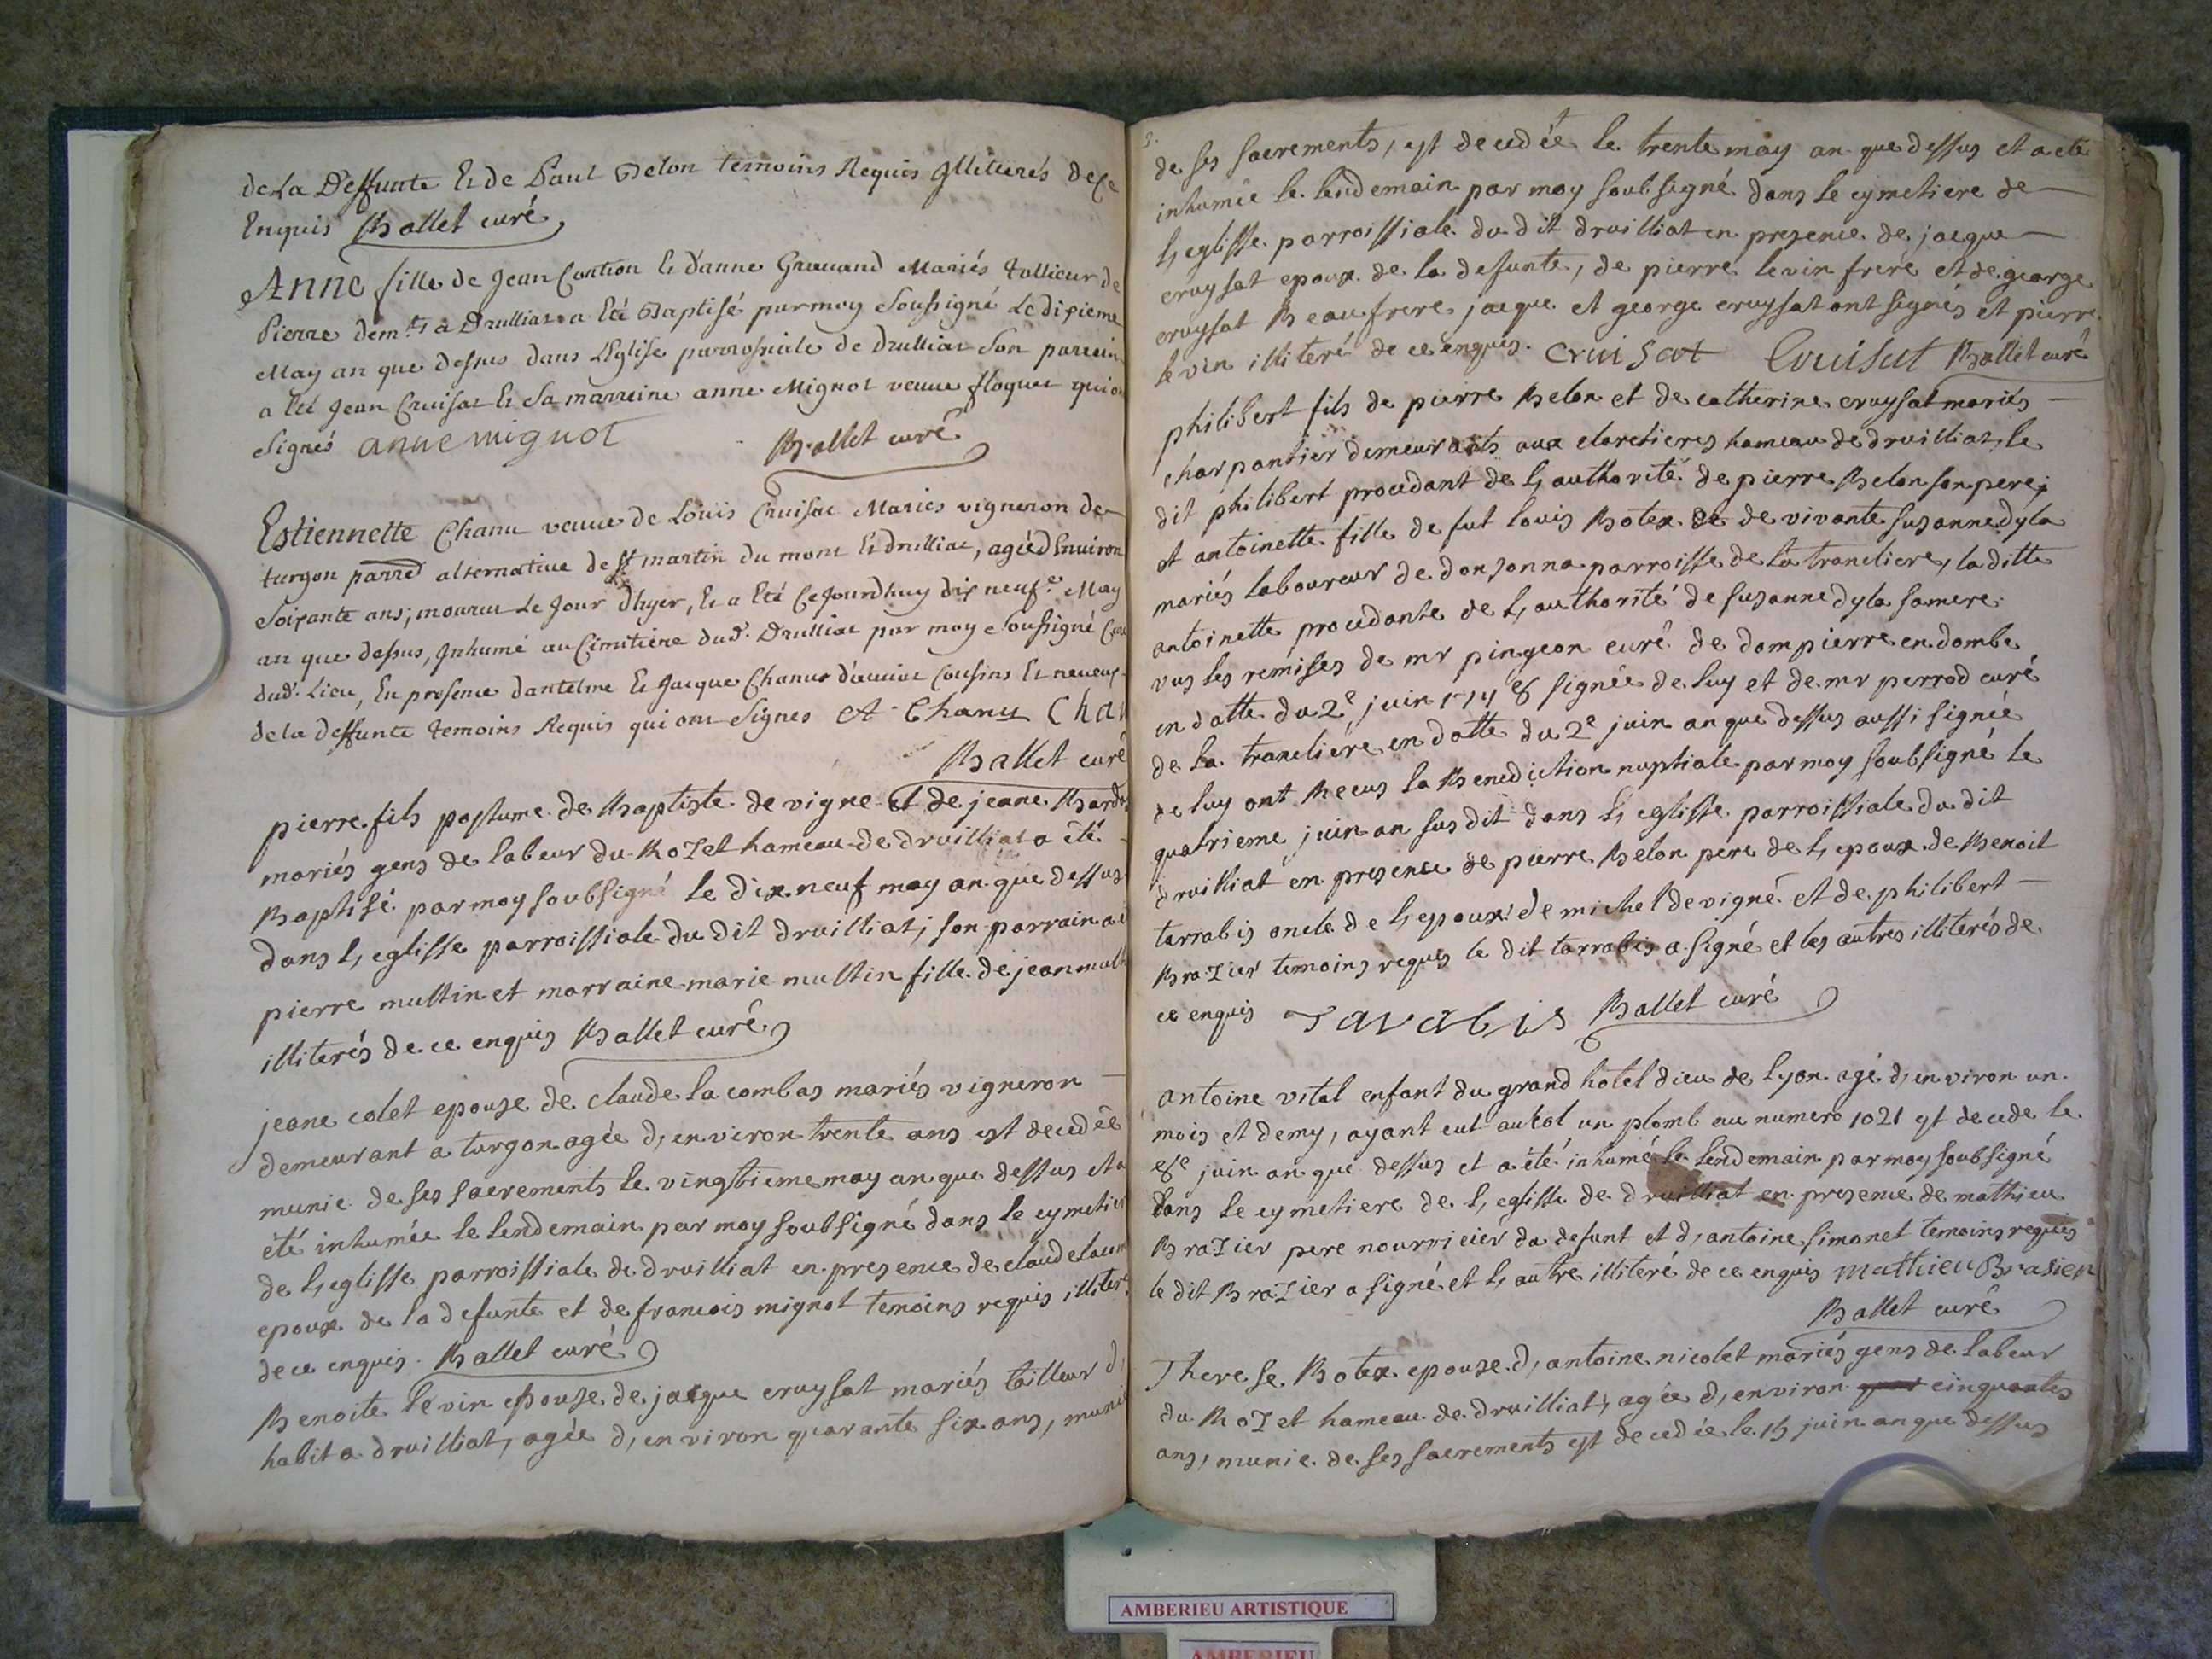 de La Deffunte Et de Paul Belon temoins Requis Illiterés de Ce
Enquis Ballet curé
Anne fille de Jean Contion Et d'anne Grauand Mariés tallieur de
Pierre dem.ts a Drulliat a Eté Baptisé par moy Soussigné Le dixieme
May an que dessus dans LEglise parrossiale de drulliat Son parrein
a Eté Jean Cruisat Et Sa marreine anne Mignot veuue floquet qui o
Signés anne mignot Ballet curé
Estiennette Chanu veuue de Louis Cruisat Mariés vigneron de
turgon parred alternatiue de St martin du mont Et drulliat, agéé d'Enuiron
Soixante ans, mourut Le Jour d'hyer, Et a Eté Cejourdhuy dix neuf.e May
an que dessus, Inhumé au Cimitiere dud. Drulliat par moy Soussigné Curé
dud. Lieu, En presence dantelme Et Jacque Chanu Cousins Et neueux
de la deffunte temoins Requis qui ont Signes A Chanu Chan
Ballet curé
pierre fils postume de Baptiste de vigne et de jeane Bard
mariés gens de labeur du Rozet hameau de druilliat a été
Baptisé par moy soubsigné le dix neuf may an que dessus
dans l, eglisse parroissiale du dit druilliat, son parrain a e
pierre multin et marraine marie multin fille de jean mult
illiterés de ce enquis Ballet curé
jeane colet epouse de claude la combas mariés vigneron
demeurant a turgon agée d, environ trente ans est decedée
munie de ses sacrements le vingtieme may an que dessus et a
été inhumée le lendemain par moy soubsigné dans le cymetier
de l, eglisse parroissiale de druilliat en presence de claude lacom
epoux de la defunte et de francois mignot temoins requis illiteré
de ce enquis Ballet curé
Benoite levin epouse de jacque cruysat mariés tailleur d,
habit a druilliat, agée d, environ quarante six ans, munie
de ses sacrements, est decedéé le trente may an que dessus et a eté
inhumée le lendemain par moy soubsigné dans le cymetiere de
l, eglisse parroissiale du dit druilliat en presence de jacque
cruysat epoux de la defunte, de pierre levin frere et de george
cruysat Beaufrere jacque et george cruysat ont signés et pierre
levin illiteré de ce enquis. cruisat Cruisat Ballet curé
philibert fils de pierre Belon et de catherine cruysat mariés
charpantier demeurants aux claretieres hameau de druilliat, le
dit philibert procedant de l, authorité de pierre Belon son pere,
et antoinette fille de fut louis Botex de de vivante susanne dyla
mariés laboureur de donsonna parroisse de la trancliere, la ditte
antoinette procedante de l, authorité de susanne dyla sa mere.
vus les remises de mr pingeon curé de dompierre en dombe
en datte du 2e juin 1748 signée de luy et de mr perrod curé
de la trancliére en datte du 2e juin an que dessus aussi signée
de luy ont Recus la Benediction nuptiale par moy soubsigné le
quatrieme juin an sus dit dans l, eglisse parroissiale du dit
druilliat en presence de pierre Belon pere de l, epoux de Benoit
tarrabis oncle de l, epoux de michel de vigne et de philibert
Brazier temoins requis le dit tarrabis a signé et les autres illiterés de
ce enquis Tarabis Ballet curé
antoine vital enfant du grand hotel dieu de lyon agé d, environ un
mois et demy, ayant eut au kol un plomb au numero 1021 est decede le
8e juin an que dessus et a été inhumé le lendemain par moy soubsigné
dans le cymetiere de l, eglisse de druilliat en presence de mathieu
Brazier pere nourricier du defunt et d, antoine simonet temoins requis
le dit Brazier a signé et l, autre illiteré de ce enquis mathieu Brasier
Ballet curé
Therese Botex epouse d, antoine nicolet mariés gens de labeur
du Rozet hameau de druilliat, agée d, environ cinquantes
ans, munie de ses sacrements est decedée le 15 juin an que dessus
AMBERIEU ARTISTIQUE
AMBERIEU